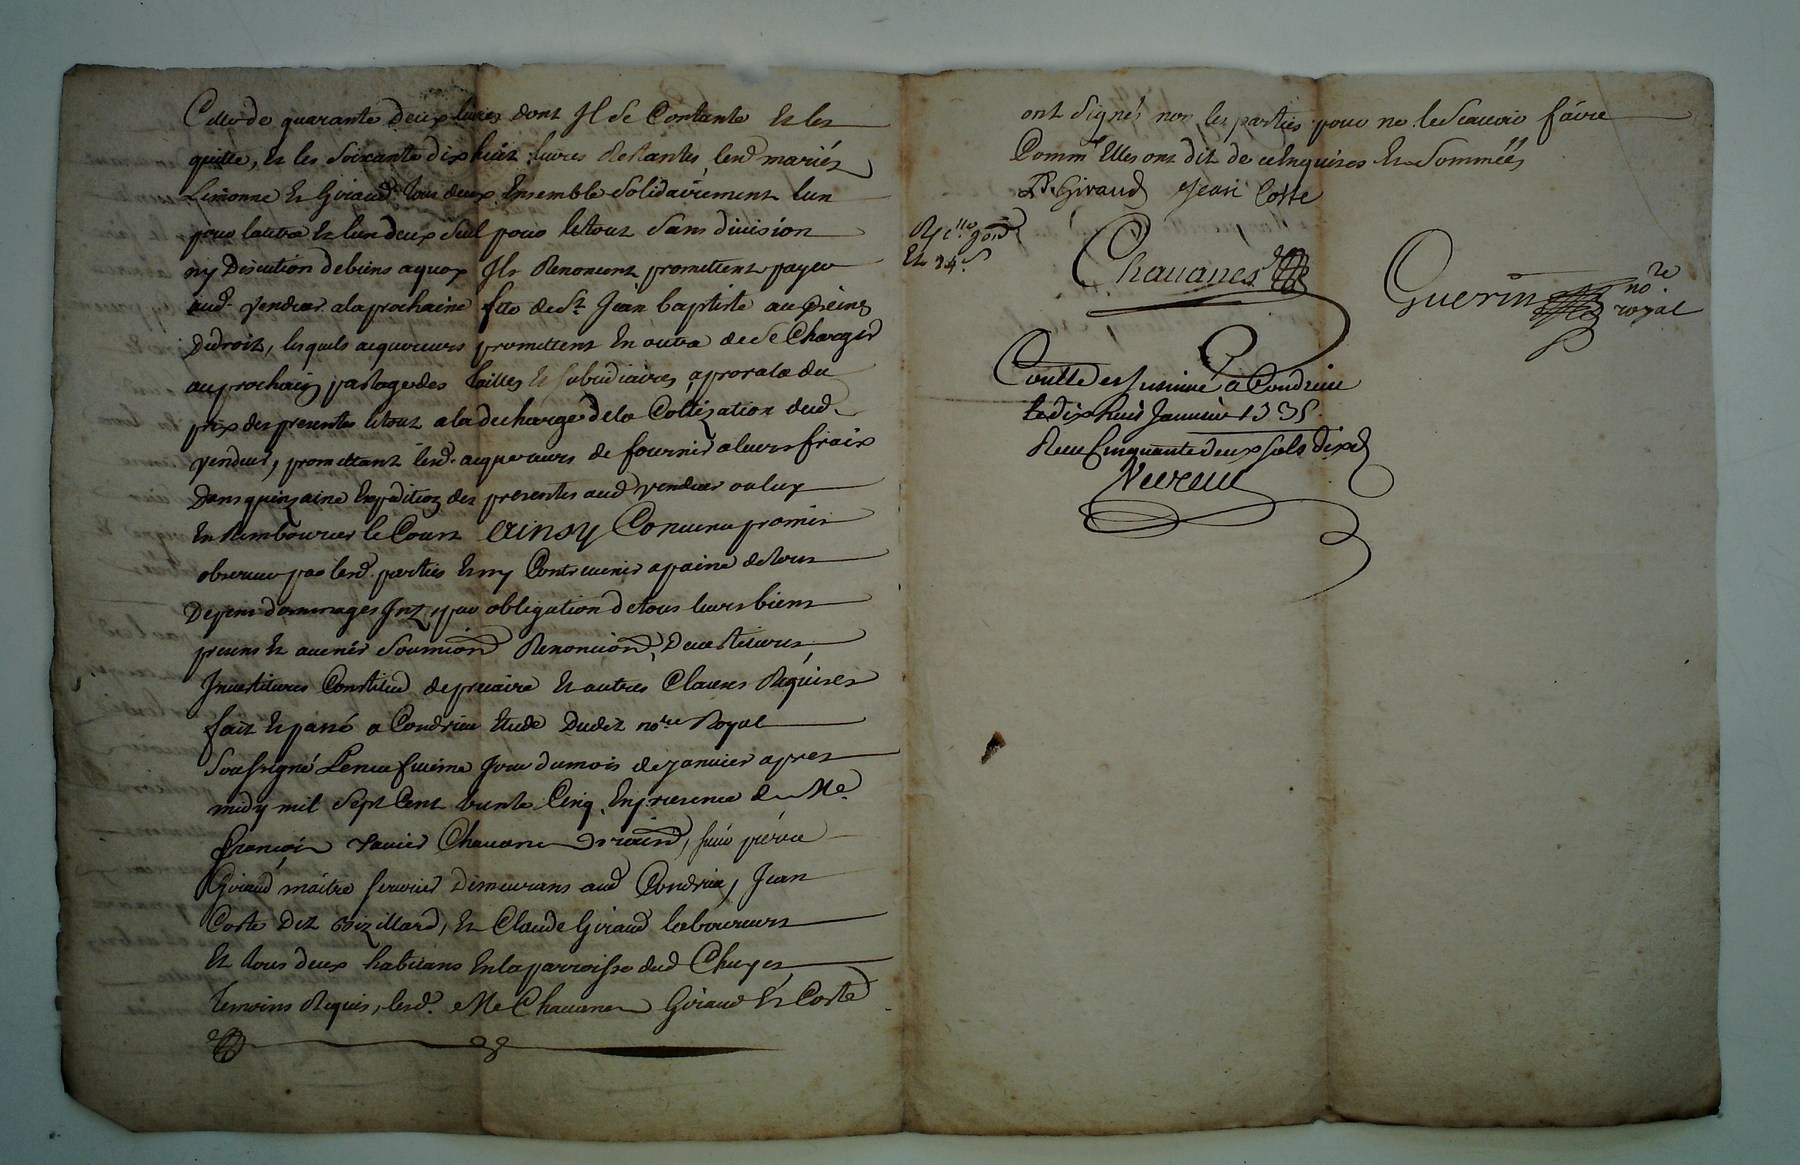 Celle de quarante deux livres dont Il se Contante Et les
quitte, Et les soixante dix huit livres Restantes, lesd. mariés
Limonne Et Giraud tous deux Ensemble solidairement lun
pour lautre Et lun deux seul pour letout sans division
ny Discution debiens aquoy Ils Renoncent promettent payer
aud. vendeur ala prochaine fete de St. Jean baptiste au
Dedroit, lesquels acquereurs promettent En outre de se Charger
au prochain partage des tailles Et subsidiaires aprorata du
prix des presentes letout ala decharge dela Cottization dud.
vendeur, promettant lesd. acquereurs de fournir a leurs fraix
Dans quinzaine Expedition des presentes aud vendeur ou luy
En Rembourcer le Coust Ainsy Convenu promis
observer par lesd. parties Et ny Contrevenir apeine detous
Depens dommages Intz, par obligation detous leurs biens
presens Et avenir Soumion Renoncion, Devestitures
Investitures Constitué depreçaire Et autres Clauses Réquises
fait Et passé a Condrieu Etude Dudit nore. Royal
Soussigné Leneufvieme Jour dumois dejanvier apres
midy mil Sept Cent trente Cinq, En presence de Me.
françois Xavier Chavanes, sieur pierre
Giraud maitre serrurier Demeurans aud Condrieu, Jean
Coste Dit, Et Claude Giraud laboureurs
Et tous deux habitans En la parroisse dud Chuyes
Temoins Requis, lesd. Me Chavanes Giraud Et Coste
ont signé, non les parties pour ne le Scavoir faire
Comme Elles ont dit de ce Enquises Et Sommées
P. Giraud Jean Coste
Et 24. s
Chavanes
Guerin nore
royal
Controllé et Insinué a Condrieu
le dix huit Janvier 1735.
Receu Cinquante deux sols dix d